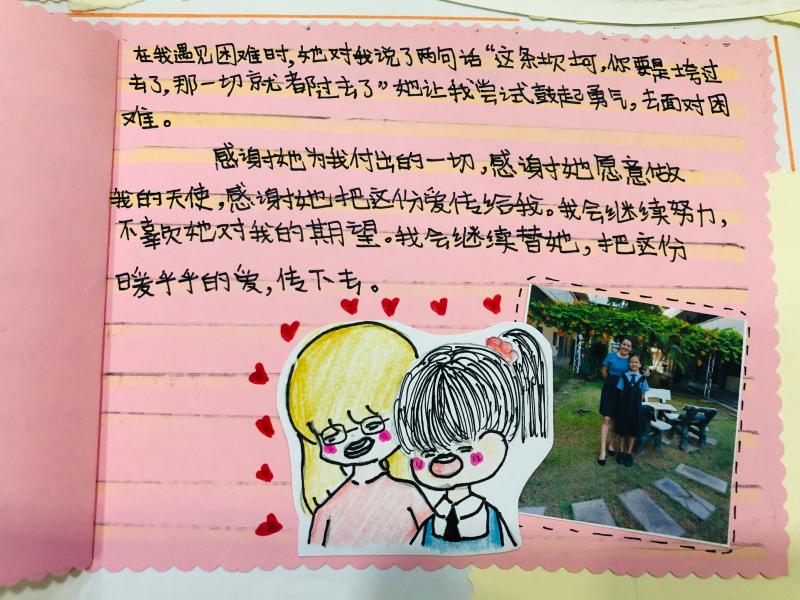 在我遇见困难时,她对我说了两句话“这条坎坷,你要是垮过
去了,那一切就都过去了”她让我尝试鼓起勇气,去面对困
难。
感谢她为我付出的一切,感谢她愿意做
我的天使,感谢她把这份爱传给我。我会继续努力,
不辜负她对我的期望。我会继续替她,把这份
暖乎乎的爱,传下去。